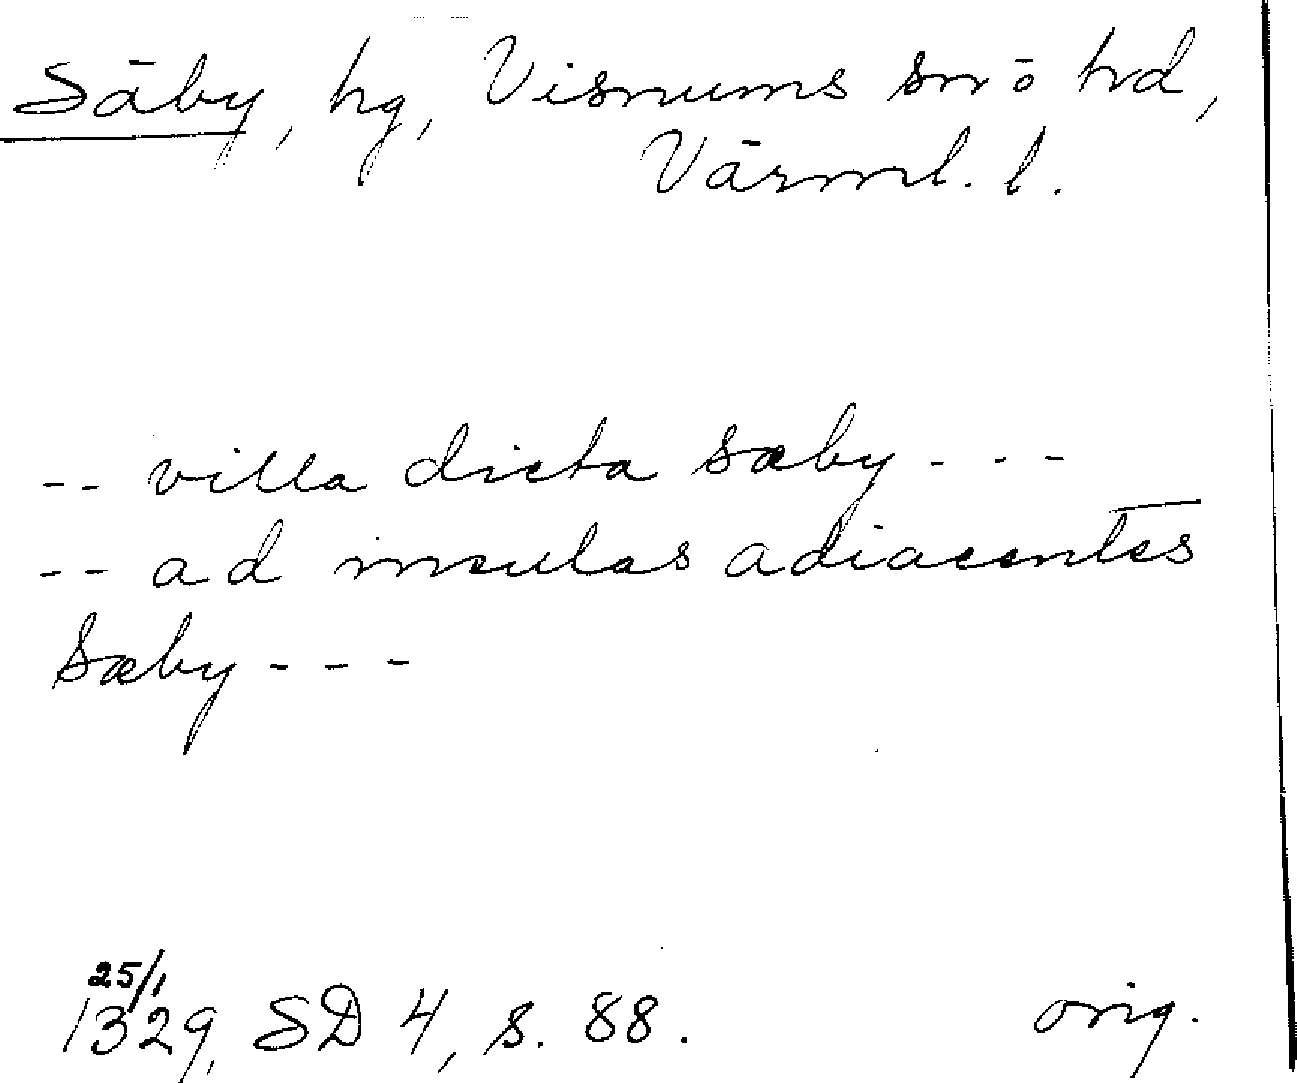 Säby, hg, Visnums sn o hd,
Värml. l.
-- villa dicta sæby - - -
-- ad insulas adiacentes
sæby - - -
25/1
1329, SD 4, s. 88. orig.